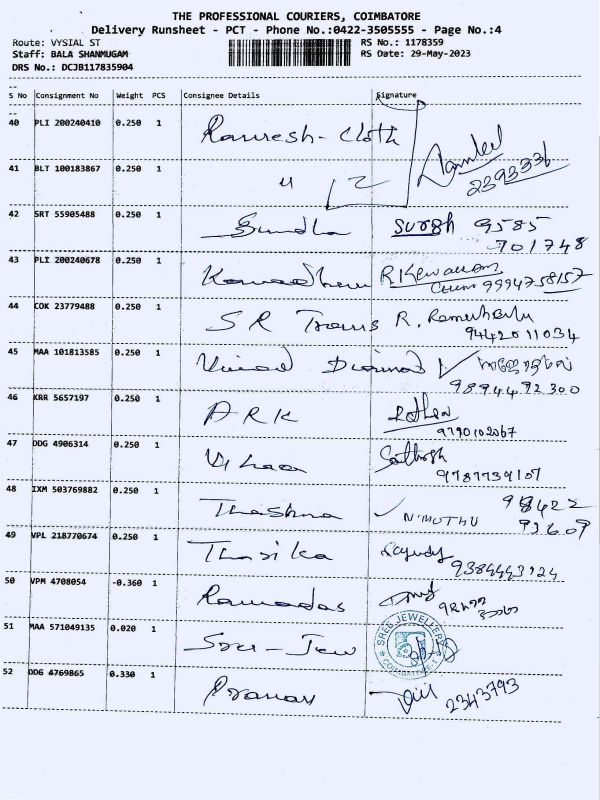 THE PROFESSIONAL COURIERS, COIMBATORE
Delivery Runsheet - PCT - Phone No.:0422-3505555 - Page No.:4
Route: VYSIAL ST RS No.: 1178359
Staff: BALA SHANMUGAM RS Date: 29-May-2023
DRS No.: DCJB117835904
S No Consignment No Weight PCS Consignee Details Signature
40 PLI 200240410 0.250 1 Ramresh - Cloth
41 BLT 100183867 0.250 1 2393336
42 SRT 55905488 0.250 1 Sundha Suresh 9585
701748
43 PLI 200240678 0.250 1 9994758157
44 COK 23779488 0.250 1 S R Trans R.
9442011034
45 MAA 101813585 0.250 1 Vinod Diamond
9894492300
46 KRR 5657197 0.250 1 ARK
9790102067
47 DDG 4906314 0.250 1 Vihaa Sathish
9787739107
48 IXM 503769882 0.250 1 Thashna 98422
N. MUTHU 93609
49 VPL 218770674 0.250 1 Thasika
9384443124
50 VPM 4708054 -0.360 1 Ramadas
51 MAA 571049135 0.020 1 Sree - Jew
SREE JEWELLERY
COIMBATORE-1
52 DDG 4769865 0.330 1 Pranav 2343793